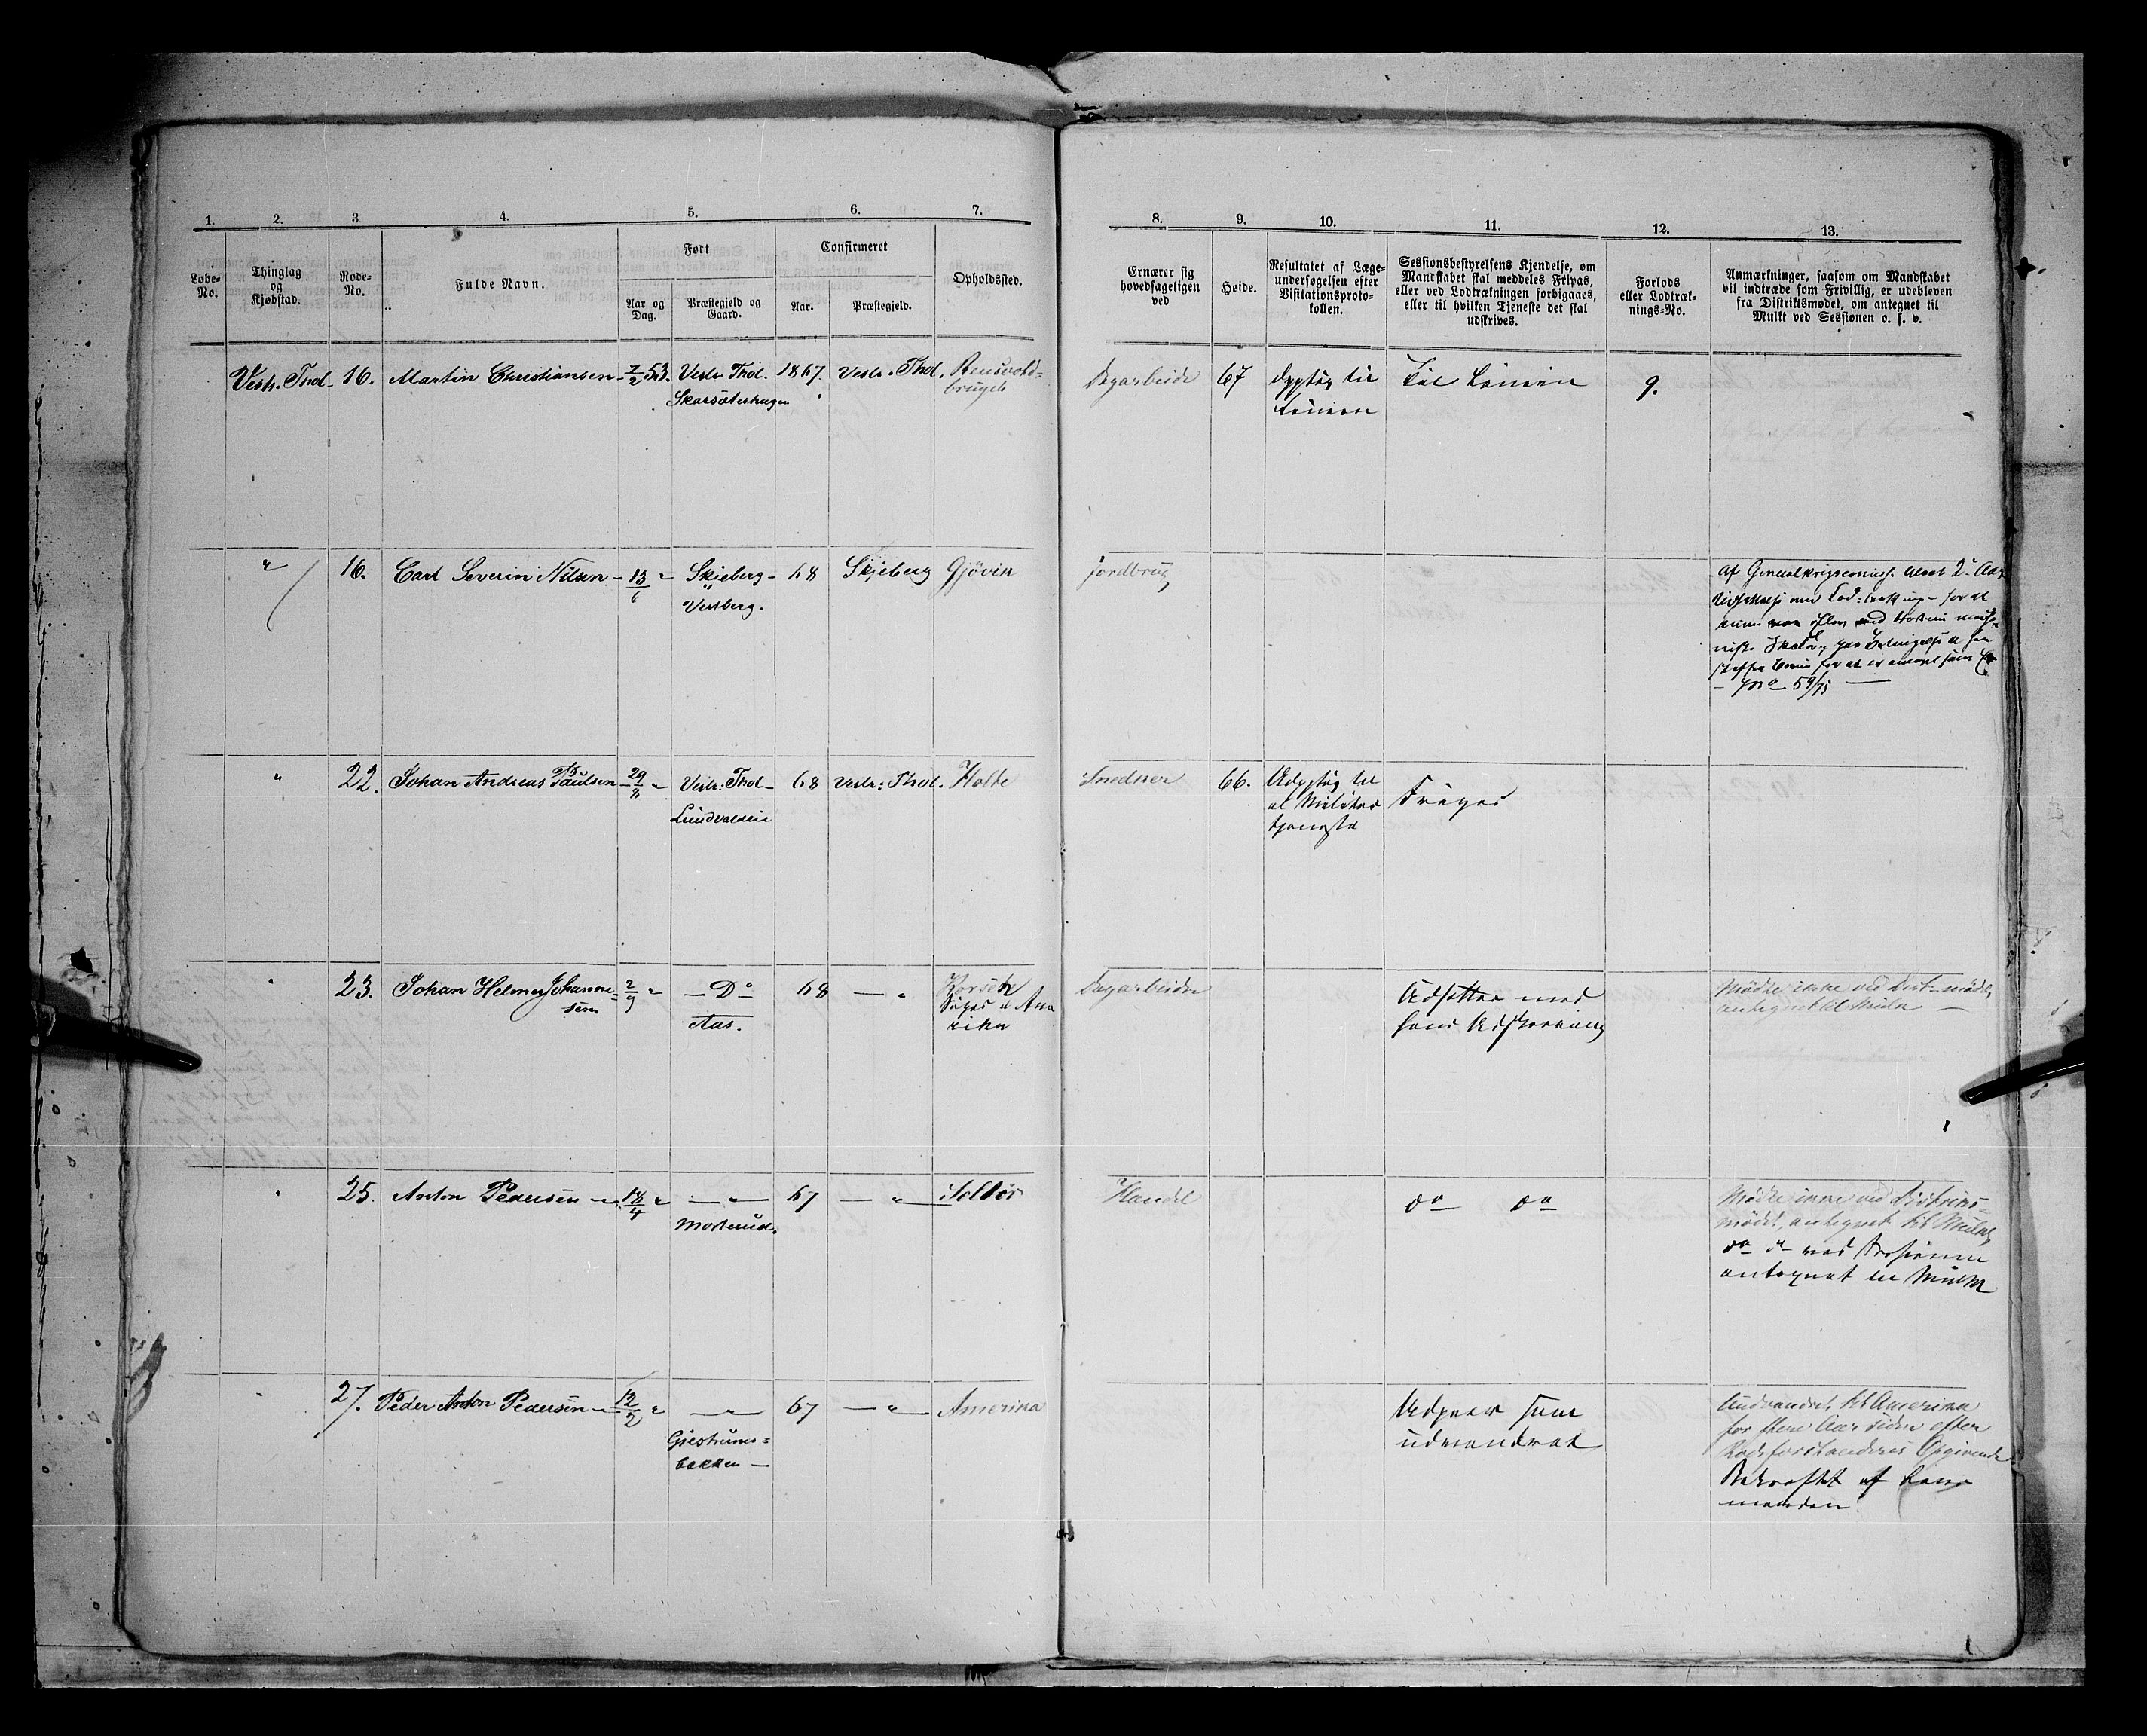 1. 2. 3. 4. 5. 6. 7.
Løbe-No. Thinglag og Kjøbstad. Rode-No. Fulde Navn. Født Confirmeret Opholdssted.
Aar og Dag. Præstegjeld og Gaard. Aar. Præstegjeld.
8. 9. 10. 11. 12. 13.
Ernærer sig hovedsageligen ved
Høide.
Resultatet af Læge-
undersøgelsen efter
Visitationsproto-
kollen.
Sessionsbestyrelsens Kjendelse, om
Mandskabet skal meddeles Fripas,
eller ved Lodtrækningen forbigaaes,
eller til hvilken Tjeneste det skal
udskrives.
Forlods
eller Lodtræk-
nings-No.
Anmærkninger, saasom om Mandskabet
vil indtræde som Frivillig, er udebleven
fra Distriktsmødet, om antegnet til
Mulkt ved Sessionen o. s. v.
Vestr. Thol. 16. Martin Christiansen 7/2 53. Vestr. Thol. 1867. Vestr. Thol.
Dagarbeide 67 dygtig til Linien 9.
Linien
" 16. Carl Severin Nilsen 13/6 " Skjeberg 68 Skjeberg Gjövin
Vestberg.
Jordbrug
59/75
" 22. Johan Andreas Paulsen 29/8 " Vestr: Thol. 68 Vestr: Thol. Holte
Snedker 66. Udygtig til Fripas
al Militær
tjeneste
" 23. Johan Helmer Johanne= 2/9 " Do 68 "
sen Aas.
Dagarbeider Udsættes med Mödte ikke ved Dist. mödet,
hans Udskrivning antegnet til Mulkt
" 25. Anton Pedersen 18/4 " " 67 "
Mosterud.
Handel do do Mödte ikke ved Distrikts=
mödet, antegnet til Mulkt,
do do ved Sessionen
antegnet til Mulkt
" 27. Peder Anton Pedersen 12/2 " " 67 " Amerika
bakken
Udgaar som Udvandret til Amerika
udvandret for flere Aar siden efter
Opgivende
Bekræftet af Lens
manden